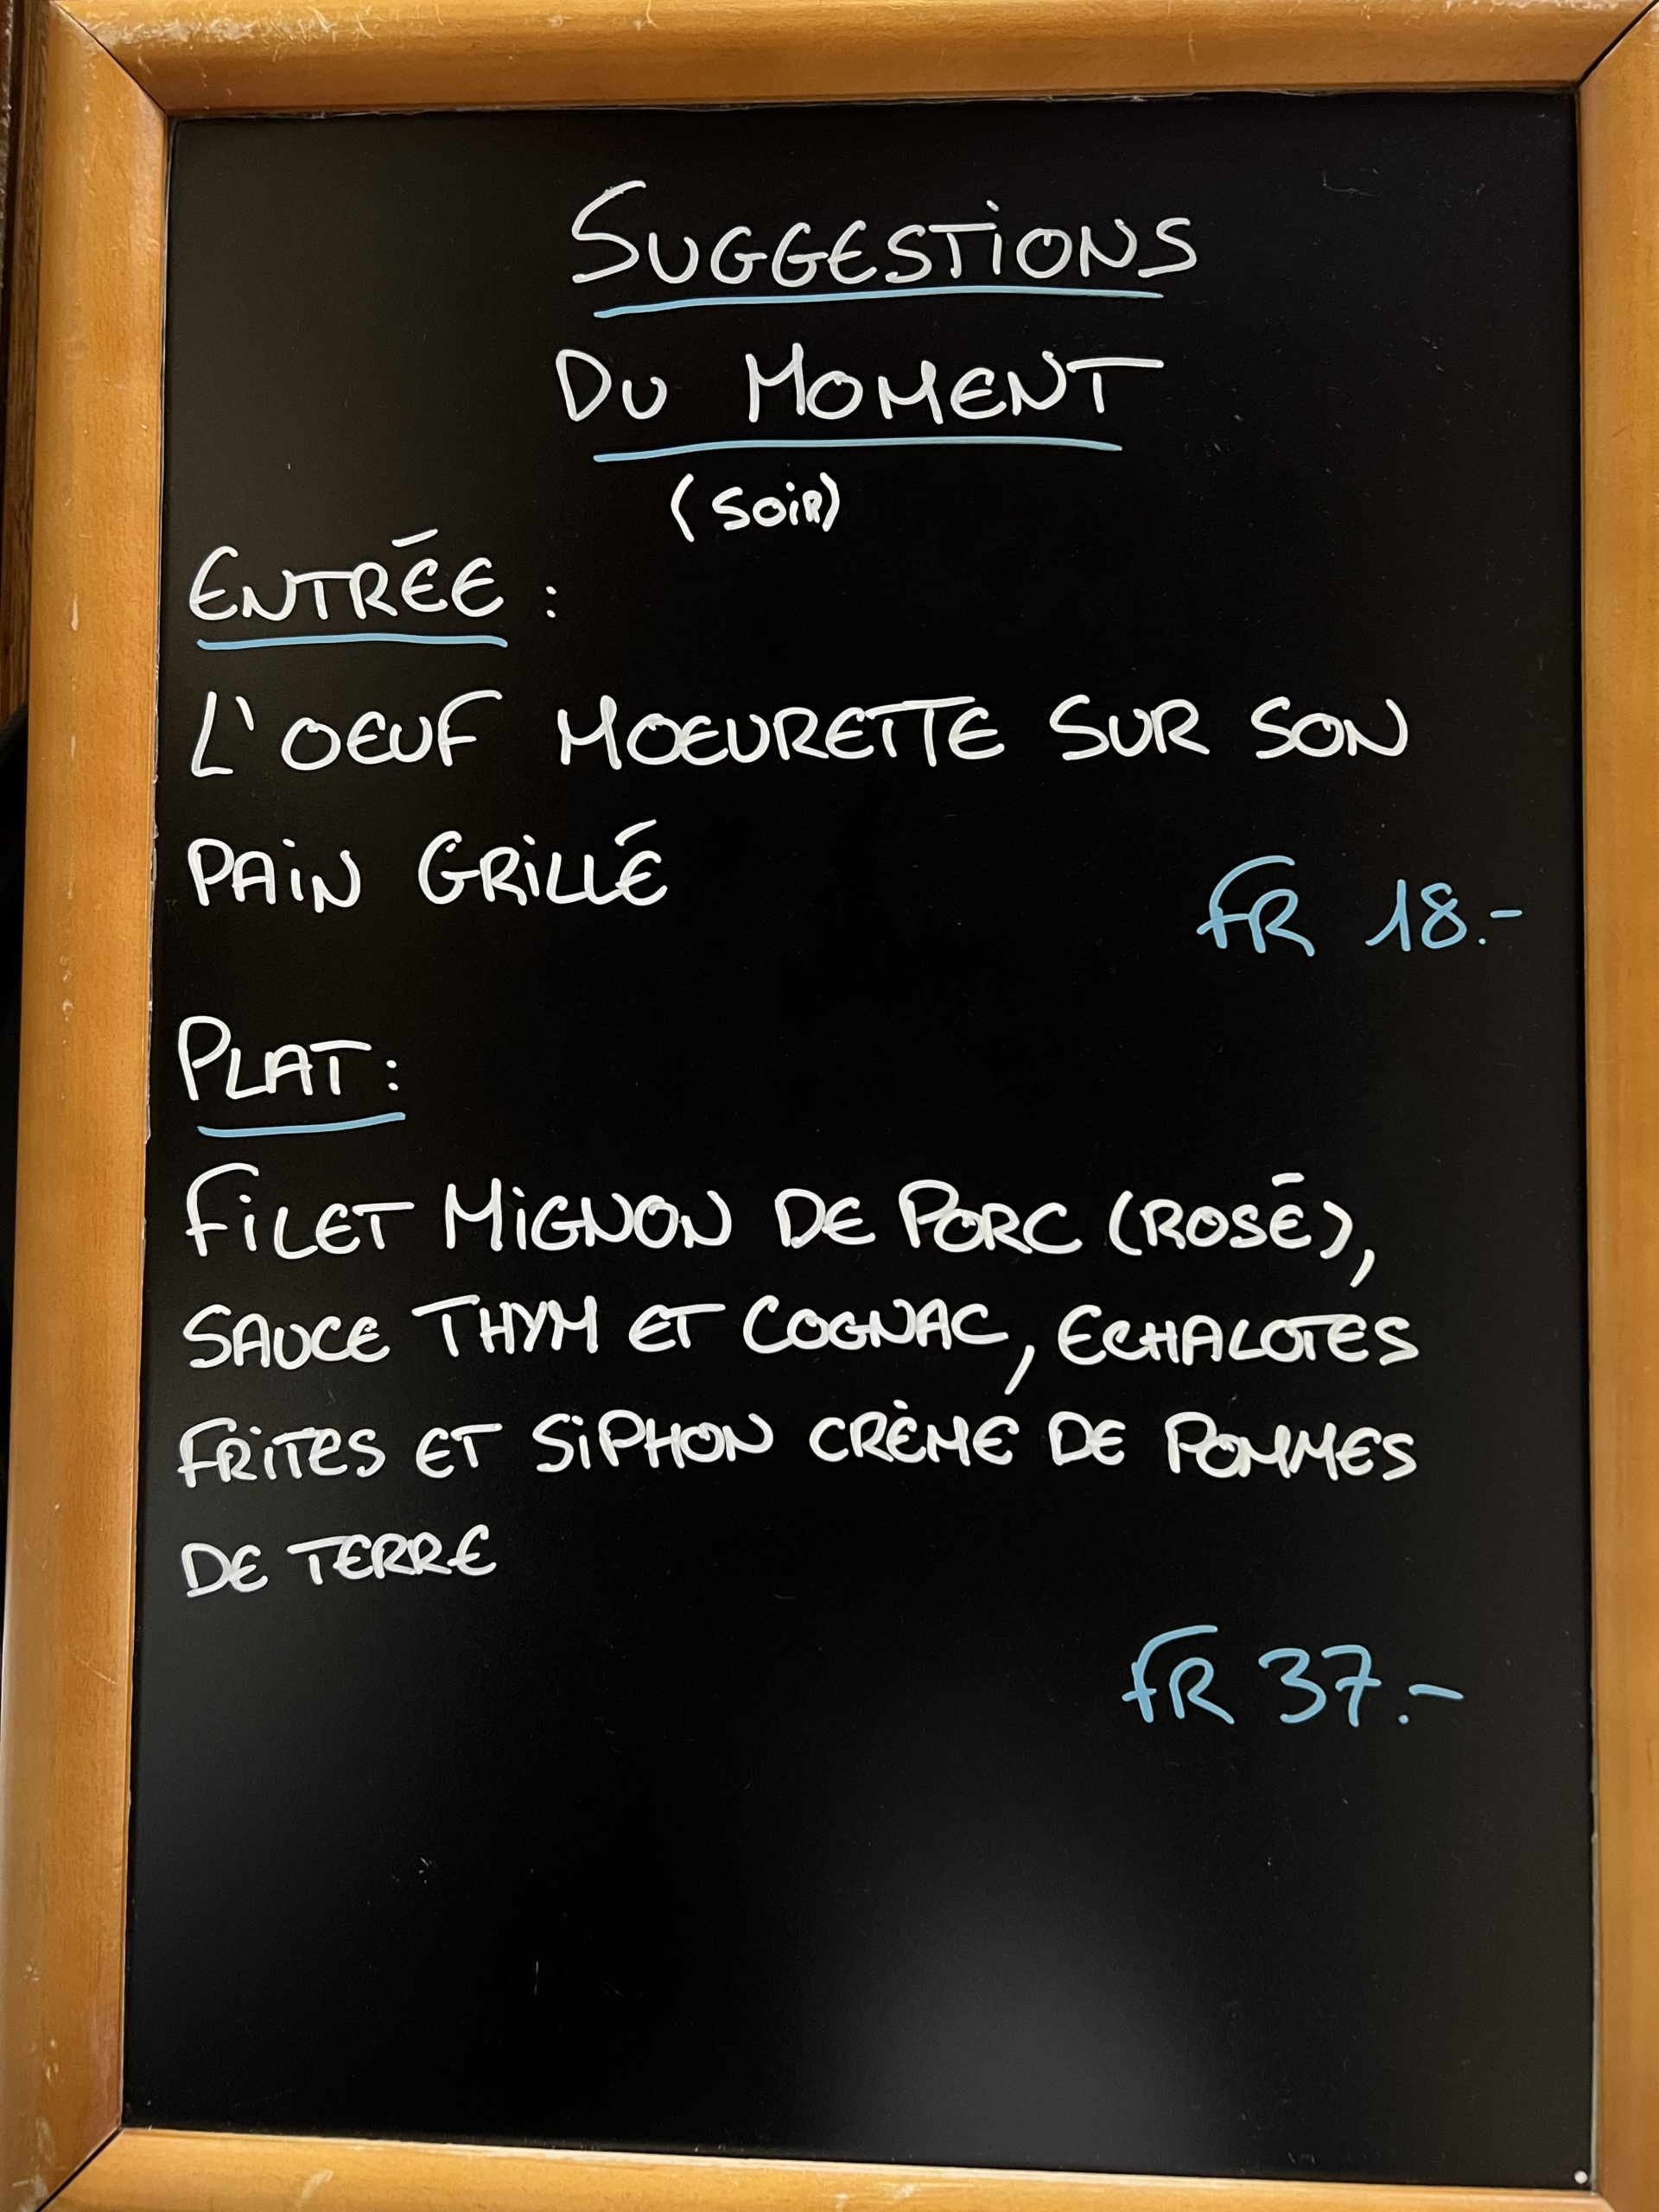 SUGGESTIONS
DU MOMENT
(SOIR)
ENTRÉE :
L'OEUF MOEURETTE SUR SON
PAIN GRILLÉ
FR 18.-
PLAT :
FILET MIGNON DE PORC (ROSÉ),
SAUCE THYM ET COGNAC, ECHALOTES
FRITES ET SIPHON CRÈME DE POMMES
DE TERRE
FR 37.-